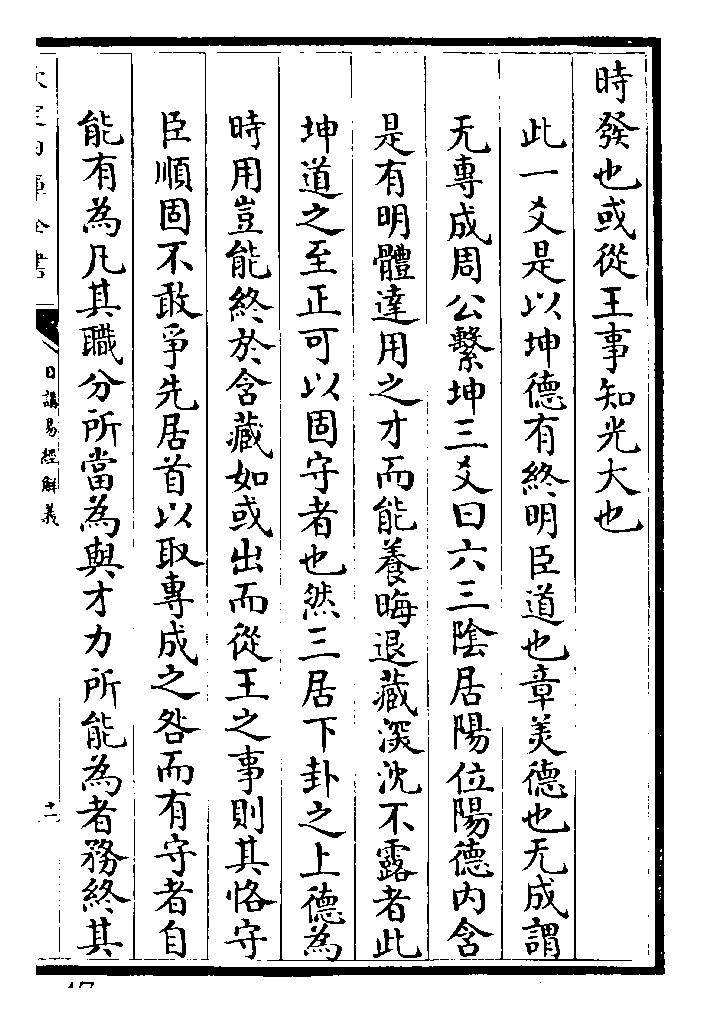 時發也或從王事知光大也
此一爻是以坤德有終明臣道也章美德也无成謂
无專成周公繫坤三爻曰六三陰居陽位陽德内含
是有明體達用之才而能養晦退藏深沈不露者此
坤道之至正可以固守者也然三居下卦之上德為
時用豈能終於含藏如或出而從王之事則其恪守
臣順固不敢爭先居首以取專成之咎而有守者自
能有為凡其職分所當為與才力所能為者務終其
日講易經解義